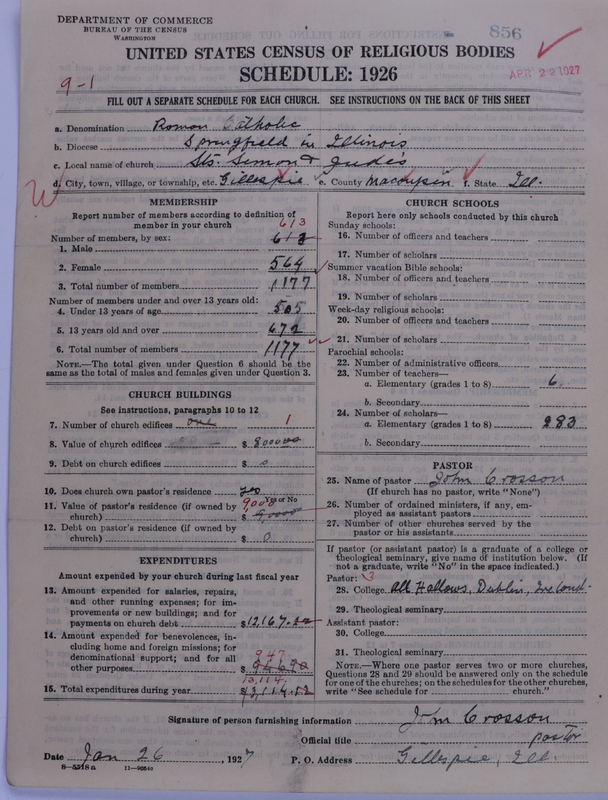 DEPARTMENT OF COMMERCE
BUREAU OF THE CENSUS
WASHINGTON
856
UNITED STATES CENSUS OF RELIGIOUS BODIES
SCHEDULE: 1926
APR 22 1927
9-1
FILL OUT A SEPARATE SCHEDULE FOR EACH CHURCH. SEE INSTRUCTIONS ON THE BACK OF THIS SHEET
a. Denomination Roman Catholic
b. Diocese Springfield in Illinois
c. Local name of church Sts. Simon & Judes
d. City, town, village, or township, etc. Gillespie e. County Macoupin f. State Ill.
W
MEMBERSHIP
Report number of members according to definition of
member in your church
613
Number of members, by sex:
1. Male 613
2. Female 564
3. Total number of members 1177
Number of members under and over 13 years old:
4. Under 13 years of age 505
5. 13 years old and over 672
6. Total number of members 1177
NOTE.—The total given under Question 6 should be the
same as the total of males and females given under Question 3.
CHURCH BUILDINGS
See instructions, paragraphs 10 to 12
7. Number of church edifices one 1
8. Value of church edifices $ 80000
9. Debt on church edifices $ 0
10. Does church own pastor's residence yes
Yes or No
11. Value of pastor's residence (if owned by
church) 9000 $ 9,000
12. Debt on pastor's residence (if owned by
church) $ 0
EXPENDITURES
Amount expended by your church during last fiscal year
13. Amount expended for salaries, repairs,
and other running expenses; for im-
provements or new buildings; and for
payments on church debt $ 12,167
14. Amount expended for benevolences, in-
cluding home and foreign missions; for
denominational support; and for all
other purposes 947 $
13,114
15. Total expenditures during year $ 13,114.52
CHURCH SCHOOLS
Report here only schools conducted by this church
Sunday schools:
16. Number of officers and teachers
17. Number of scholars
Summer vacation Bible schools:
18. Number of officers and teachers
19. Number of scholars
Week-day religious schools:
20. Number of officers and teachers
21. Number of scholars
Parochial schools:
22. Number of administrative officers
23. Number of teachers—
a. Elementary (grades 1 to 8) 6
b. Secondary
24. Number of scholars—
a. Elementary (grades 1 to 8) 283
b. Secondary
PASTOR
25. Name of pastor John Crosson
(If church has no pastor, write "None")
26. Number of ordained ministers, if any, em-
ployed as assistant pastors
27. Number of other churches served by the
pastor or his assistants
If pastor (or assistant pastor) is a graduate of a college or
theological seminary, give name of institution below. (If
not a graduate, write "No" in the space indicated.)
Pastor:
28. College All Hallows, Dublin, Ireland
29. Theological seminary
Assistant pastor:
30. College
31. Theological seminary
NOTE.—Where one pastor serves two or more churches,
Questions 28 and 29 should be answered only on the schedule
for one of the churches; on the schedules for the other churches,
write "See schedule for church."
Signature of person furnishing information John Crosson
Official title pastor
Date Jan 26, 1927 P. O. Address Gillespie, Ill.
8—5518a 11—9984